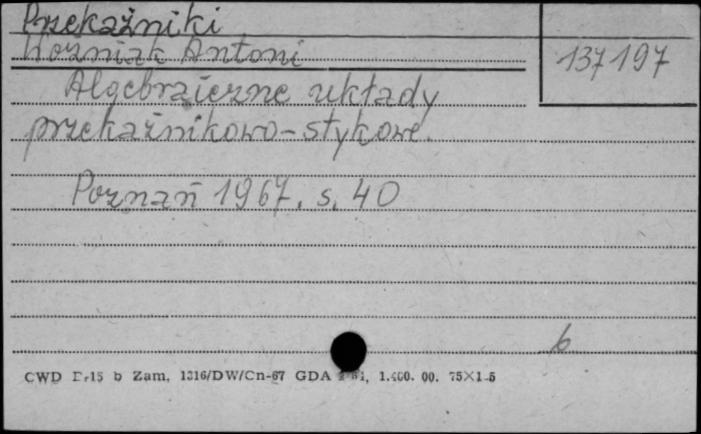 Przekaźniki
Woźniak Antoni
137197
Algebraiczne układy
przekaźnikowo-stykowe.
Poznań 1967. s. 40
6
CWD Dr15 b Zam. 1316/DW/Cn-67 GDA 1.400. 00. 75X1-5